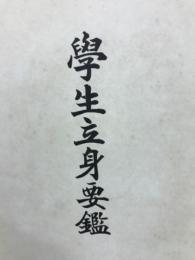 學生立身要鑑